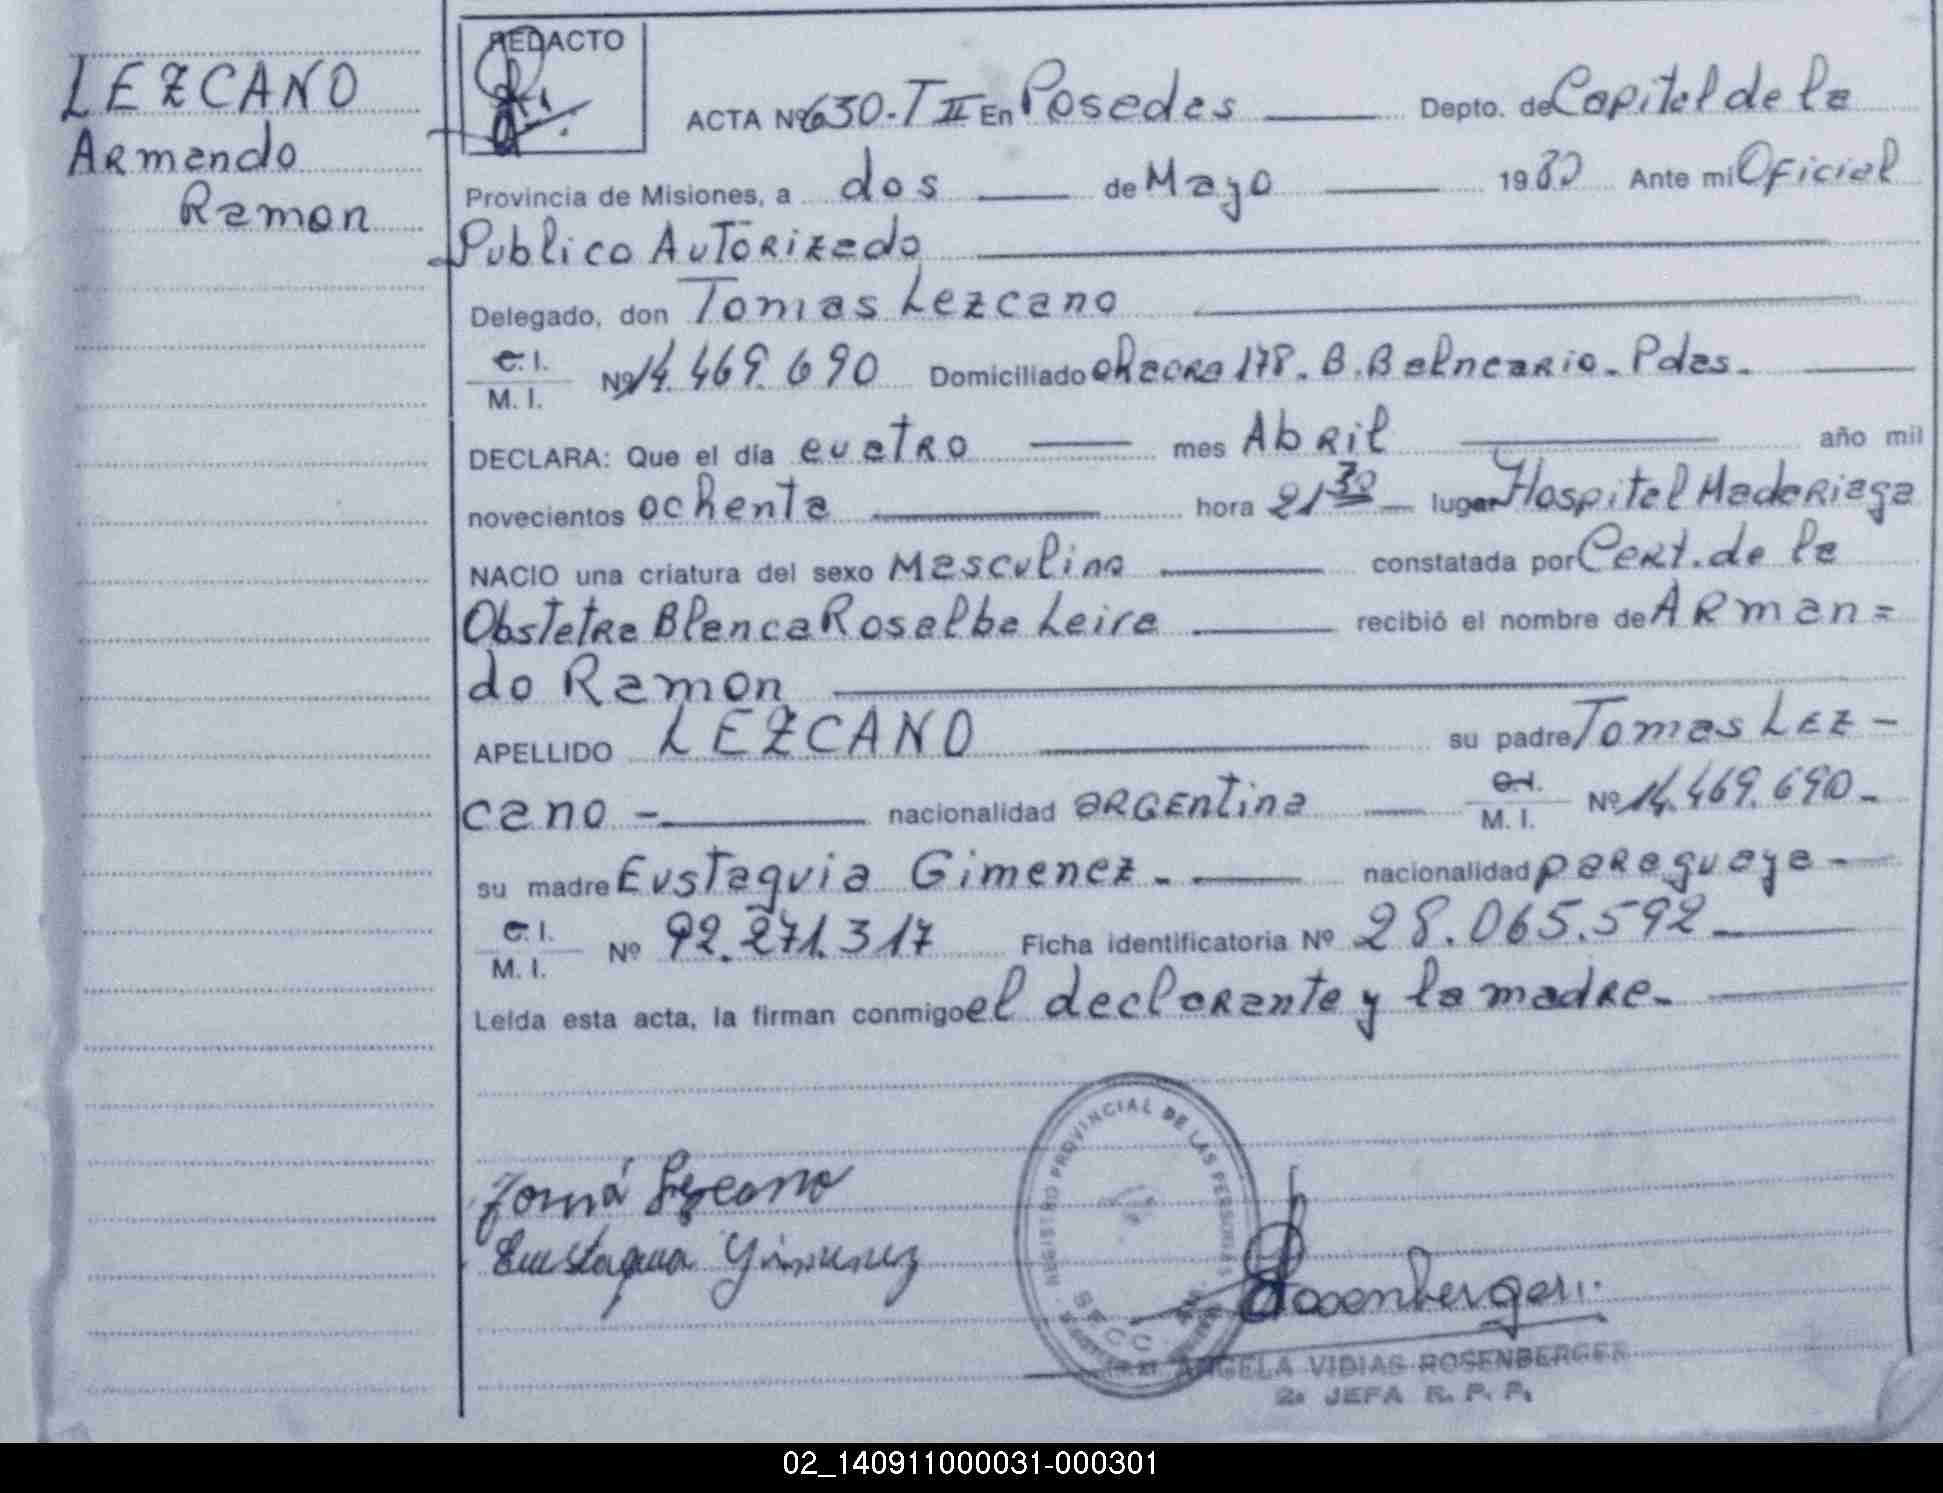 LEZCANO
Armando
Ramon
REDACTO
ACTA Nº 630-T II En Posadas Depto. de Capital de la
Provincia de Misiones, a dos de Mayo 1980 Ante mi Oficial
Publico Autorizado
Delegado, don Tomas Lezcano
C.I. M.I. Nº 14.469.690 Domiciliado chacra 178. B. Balneario. Pdas.
DECLARA: Que el día cuatro mes Abril año mil
novecientos ochenta hora 21 30 lugar Hospital Madariaga
NACIO una criatura del sexo Masculino constatada por Cert. de la
Obstetra Blanca Rosalba Leira recibió el nombre de Arman=
do Ramon
APELLIDO LEZCANO su padre Tomas Lez-
cano - nacionalidad argentina C.I. M.I. Nº 14.469.690-
su madre Eustaquia Gimenez.- nacionalidad paraguaya-
C.I. M.I. Nº 92.271.317 Ficha identificatoria Nº 28.065.592-
Leída esta acta, la firman conmigo el declarante y la madre.-
REGISTRO PROVINCIAL DE LAS PERSONAS
Tomá Lezcano
Eustaquia Gimenez
Rosenberger
ANGELA VIDIAS ROSENBERGER
2a JEFA R. P. P.
02_140911000031-000301